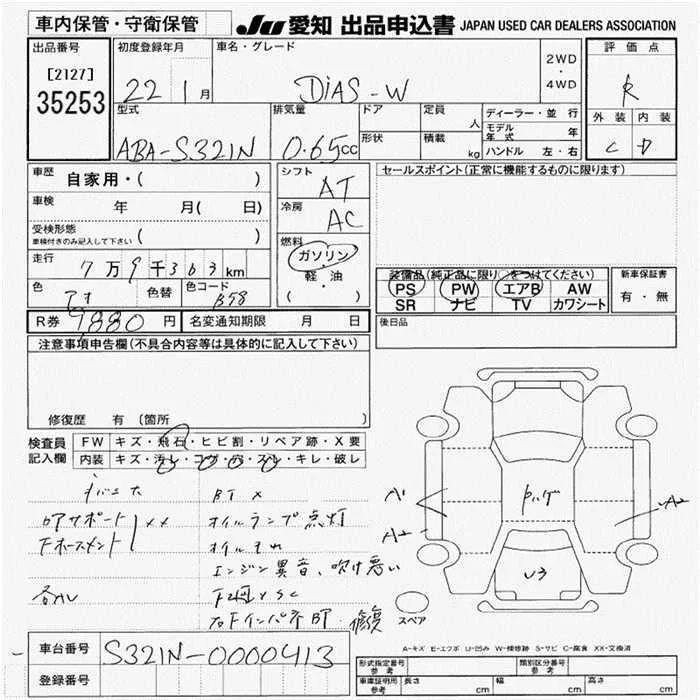 車内保管・守衛保管
JU 愛知 出品申込書 JAPAN USED CAR DEALERS ASSOCIATION
出品番号
[2127]
35253
初度登録年月
22 1月
車名・グレード
DiAS-W
2WD
・
4WD
評価点
R
外装 内装
C D
型式
ABA-S321N
排気量
0.65cc
ドア
形状
定員
人
積載
kg
ディーラー・並行
モデル年式 年
ハンドル 左・右
車歴
自家用・( )
車検
年 月( 日)
受検形態
車検付きのみ記入して下さい ( )
走行
7万9千363km
色
アオ
色替
色コード
B58
R券 9880 円
名変通知期限 月 日
シフト
AT
冷房
AC
燃料
ガソリン
軽・油
( ・ )
セールスポイント(正常に機能するものに限ります)
装備品(純正品に限り○をつけてください)
PS PW エアB AW
SR ナビ TV カワシート
新車保証書
有・無
後日品
注意事項申告欄(不具合内容等は具体的に記入して下さい)
修復歴 有(箇所 )
検査員
記入欄
FW キズ・飛石・ヒビ割・リペア跡・X要
内装 キズ・汚レ・コゲ・穴・スレ・キレ・破レ
BT X
オイルランプ点灯
オイルモレ
エンジン異音、吹け悪い
A1
A2
A2
スペア
A-キズ E-エクボ U-凹み W-補修跡 S-サビ C-腐食 XX-交換済
車台番号
S321N-0000413
登録番号
形式指定番号
参考
類別区分番号
参考
車庫証明用
参考
長さ cm
幅 cm
高さ cm